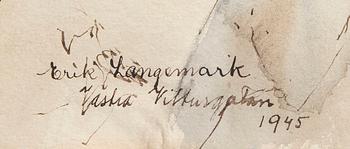 Erik Langemark
Västra Vittusgatan
1945